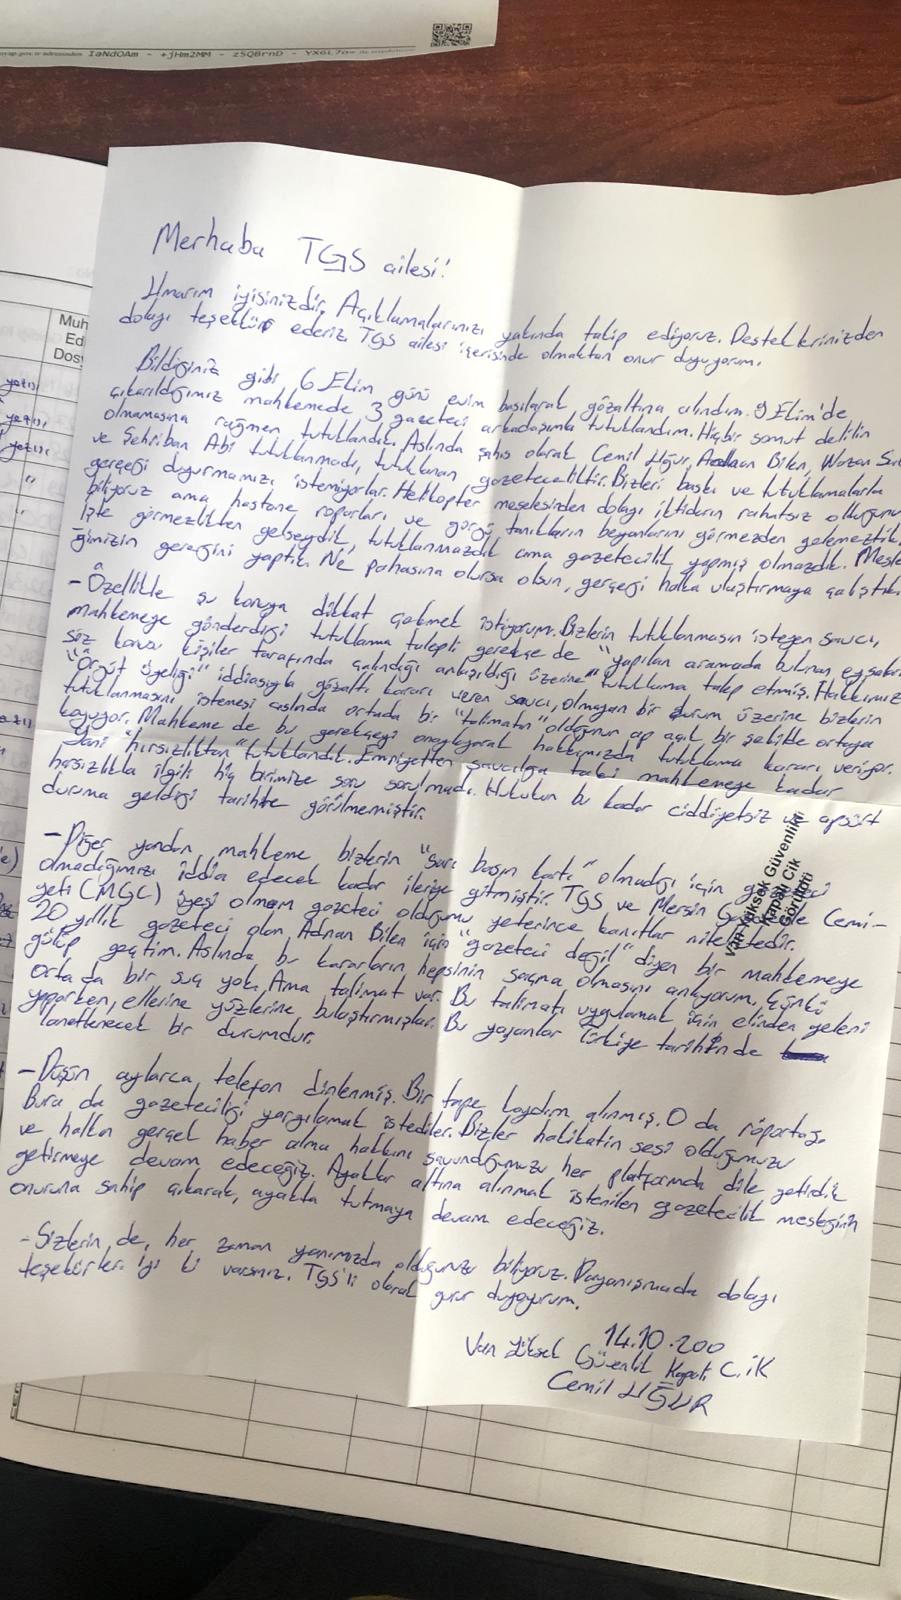 IaNdOAm - +jHm2MM - z5QBrnD - YX6L7o=
Muh
Ed
Dos
Merhaba TGS ailesi!
Umarım iyisinizdir. Açıklamalarınızı yakında takip ediyoruz. Desteklerinizden
dolayı teşekkür ederiz. TGS ailesi içerisinde olmaktan onur duyuyorum.
Bildiğiniz gibi 6 Ekim günü evim basılarak gözaltına alındım. 9 Ekim'de
çıkarıldığımız mahkemede 3 gazeteci arkadaşımla tutuklandım. Hiçbir somut delilin
olmamasına rağmen tutuklandık. Aslında şahıs olarak Cemil Uğur, Adnan Bilen, Nazan Sa
ve Şehriban Abi tutuklanmadı, tutuklanan gazeteciliktir. Bizleri baskı ve tutuklamalarla
gerçeği duyurmamızı istemiyorlar. Helikopter meselesinden dolayı iktidarın rahatsız olduğunu
biliyoruz ama hastane raporları ve görgü tanıkların beyanlarını görmezden gelemeztik.
İşte görmezlikten gelseydik, tutuklanmazdık ama gazetecilik yapmış olmazdık. Mesle
ğimizin gereğini yaptık. Ne pahasına olursa olsun, gerçeği halka ulaştırmaya çalıştık
- Özellikle şu konuya dikkat çekmek istiyorum. Bizlerin tutuklanmasın isteyen savcı,
mahkemeye gönderdiği tutuklama talepli gerekçe de "yapılan aramada bulunan eşyaları
söz konusu kişiler tarafında çalındığı anlaşıldığı üzerine" tutuklama talep etmiş. Hakkımız
"Örgüt üyeliği" iddiasıyla gözaltı kararı veren savcı, olmayan bir durum üzerine bizlerin
tutuklanmasını istemesi aslında ortada bir "talimatın" olduğunu ap açık bir şekilde ortaya
koyuyor. Mahkeme de bu gerekçeyi onaylayarak hakkımızda tutuklama kararı veriyor.
Yani "hırsızlıktan" tutuklandık. Emniyetten savcılığa tabi mahkemeye kadar
hırsızlıkla ilgili hiç birimize soru sorulmadı. Hukukun bu kadar ciddiyetsiz ve apsürt
duruma geldiği tarihte görülmemiştir.
- Diğer yandan, mahkeme bizlerin "sarı basın kartı" olmadığı için
olmadığımızı iddia edecek kadar ileriye gitmiştir. TGS ve Mersin Cemi-
yeti (MGC) üyesi olmam gazeteci olduğumu yeterince kanıtlar niteliktedir.
20 yıllık gazeteci olan Adnan Bilen için "gazeteci değil" diyen bir mahkemeye
gülüp geçtim. Aslında bu kararların hepsinin saçma olmasını anlıyorum. Çünkü
Ortada bir suç yok. Ama talimat var. Bu talimatı uygulamak için elinden geleni
yaparken, ellerine yüzlerine bulaştırmışlar. Bu yaşanlar Türkiye tarihinde
lanetlenecek bir durumdur.
- Düşün aylarca telefon dinlenmiş. Bir tape kaydım alınmış. O da röportaj.
Bura da gazeteciliği yargılamak istediler. Bizler hakikatin sesi olduğumuzu
ve halkın gerçek haber alma hakkını savunduğumuzu her platformda dile getirdik
getirmeye devam edeceğiz. Ayaklar altına alınmak istenilen gazetecilik mesleğinin
onuruna sahip çıkarak, ayakta tutmaya devam edeceğiz.
- Sizlerin de, her zaman yanımızda olduğunuzu biliyoruz. Dayanışmada dolayı
teşekürler. İyi ki varsınız. TGS'li olarak gurur duyuyorum.
14.10.200
Van Yüksek Güvenlik Kapalı C.İK
Cemil UĞUR
Van Yüksek Güvenlikli
Kapalı Cik
Görüldü